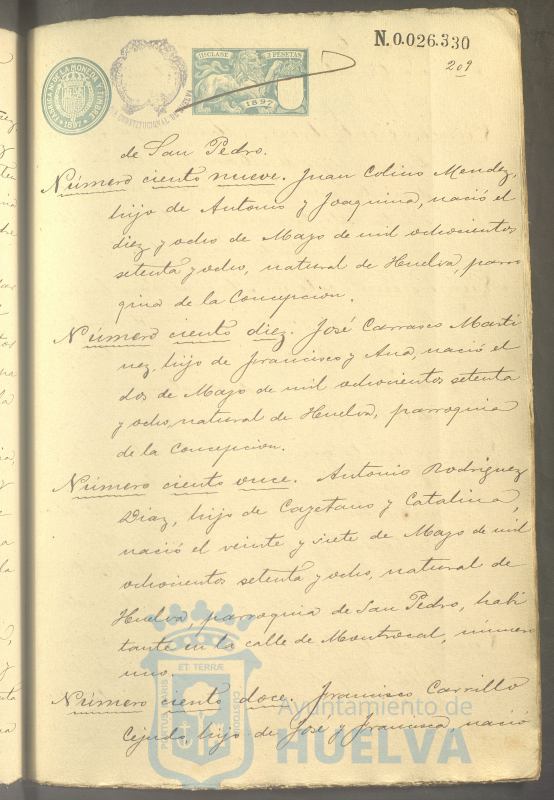 N.0.026.330
209
FABRICA N. DE LA MONEDA Y TIMBRE
1897
11ª CLASE
2 PESETAS
1897
CONSTITUCIONAL DE HUELVA
de San Pedro.
Número ciento nueve. Juan Colino Mendez,
hijo de Antonio y Joaquina, nació el
diez y ocho de Mayo de mil ochocientos
setenta y ocho, natural de Huelva, parro
quia de la Concepcion.
Número ciento diez. José Carrasco Marti
nez, hijo de Francisco y Ana, nació el
dos de Mayo de mil ochocientos setenta
y ocho, natural de Huelva, parroquia
de la Concepcion.
Número ciento once. Antonio Rodriguez
Diaz, hijo de Cayetano y Catalina,
nació el veinte y siete de Mayo de mil
ochocientos setenta y ocho, natural de
Huelva, parroquia de San Pedro, habi
tante en la calle de Montrocal, número
uno.
Número ciento doce. Francisco Carrillo
Cejudo, hijo de José y Francisca, nació
PORTUS MARIS
ET TERRÆ
CUSTODIA
Ayuntamiento de
HUELVA